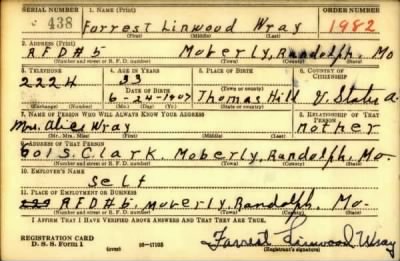 SERIAL NUMBER 1. NAME (Print) ORDER NUMBER
438 Forrest Linwood Wray 1982
(First) (Middle) (Last)
2. ADDRESS (Print)
R F D # 5 Moberly, Randolph. Mo
(Number and street or R. F. D. number) (Town) (County) (State)
3. TELEPHONE 4. AGE IN YEARS 5. PLACE OF BIRTH 6. COUNTRY OF CITIZENSHIP
222 H 33
DATE OF BIRTH Thomas Hill U. States a.
6-24-1907 (Town or county)
(Exchange) (Number) (Mo.) (Day) (Yr.) (State or country)
7. NAME OF PERSON WHO WILL ALWAYS KNOW YOUR ADDRESS 8. RELATIONSHIP OF THAT PERSON
Mrs. Alice Wray Mother
(Mr., Mrs., Miss) (First) (Middle) (Last)
9. ADDRESS OF THAT PERSON
601 S. Clark. Moberly, Randolph, Mo.
(Number and street or R. F. D. number) (Town) (County) (State)
10. EMPLOYER'S NAME
Self
11. PLACE OF EMPLOYMENT OR BUSINESS
R F D # 5, Moberly, Randolph. Mo.
(Number and street or R. F. D. number) (Town) (County) (State)
I AFFIRM THAT I HAVE VERIFIED ABOVE ANSWERS AND THAT THEY ARE TRUE.
REGISTRATION CARD
D. S. S. Form 1 16-17105 Forrest Linwood Wray
(Registrant's signature)